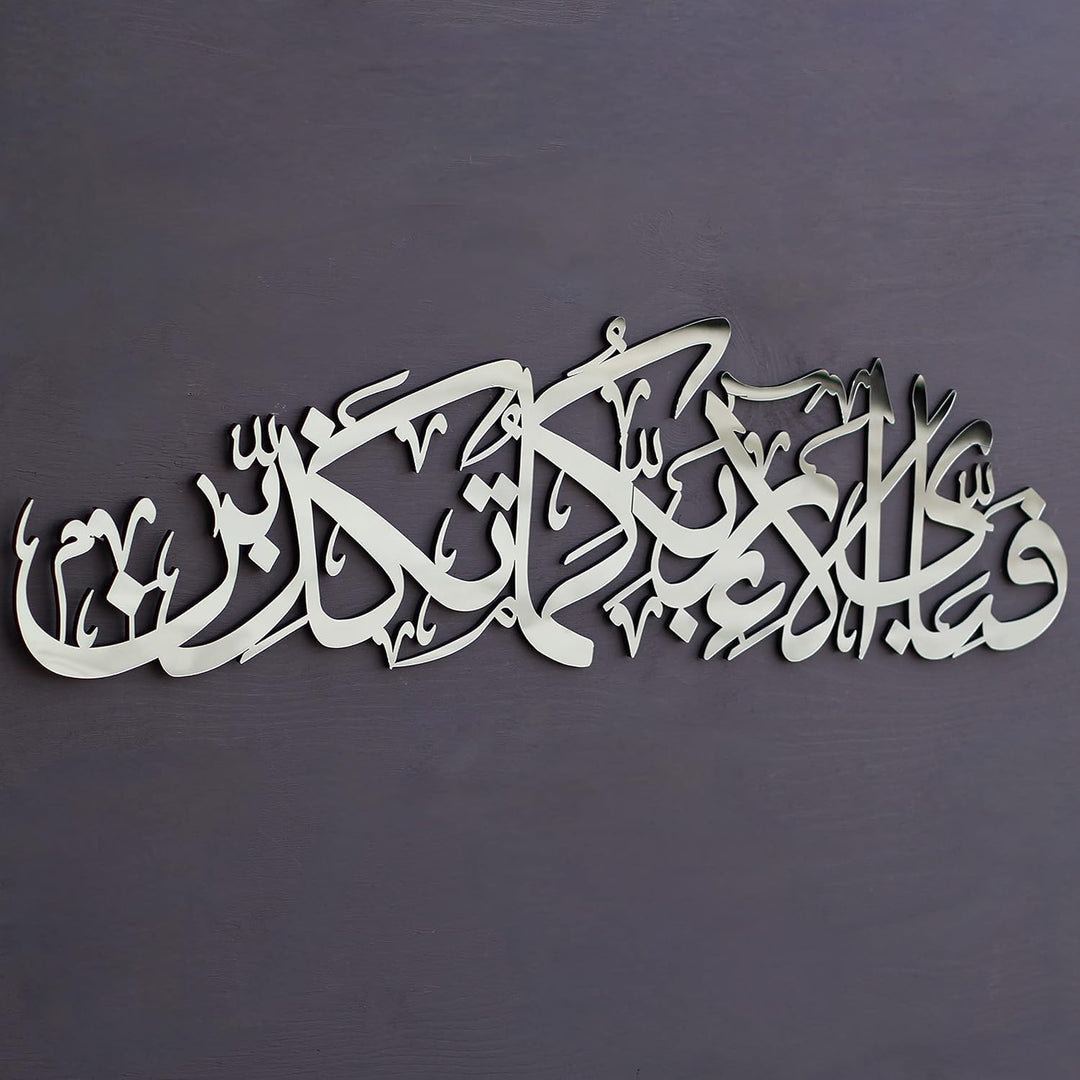 فبأي آلاء ربكما تكذبان